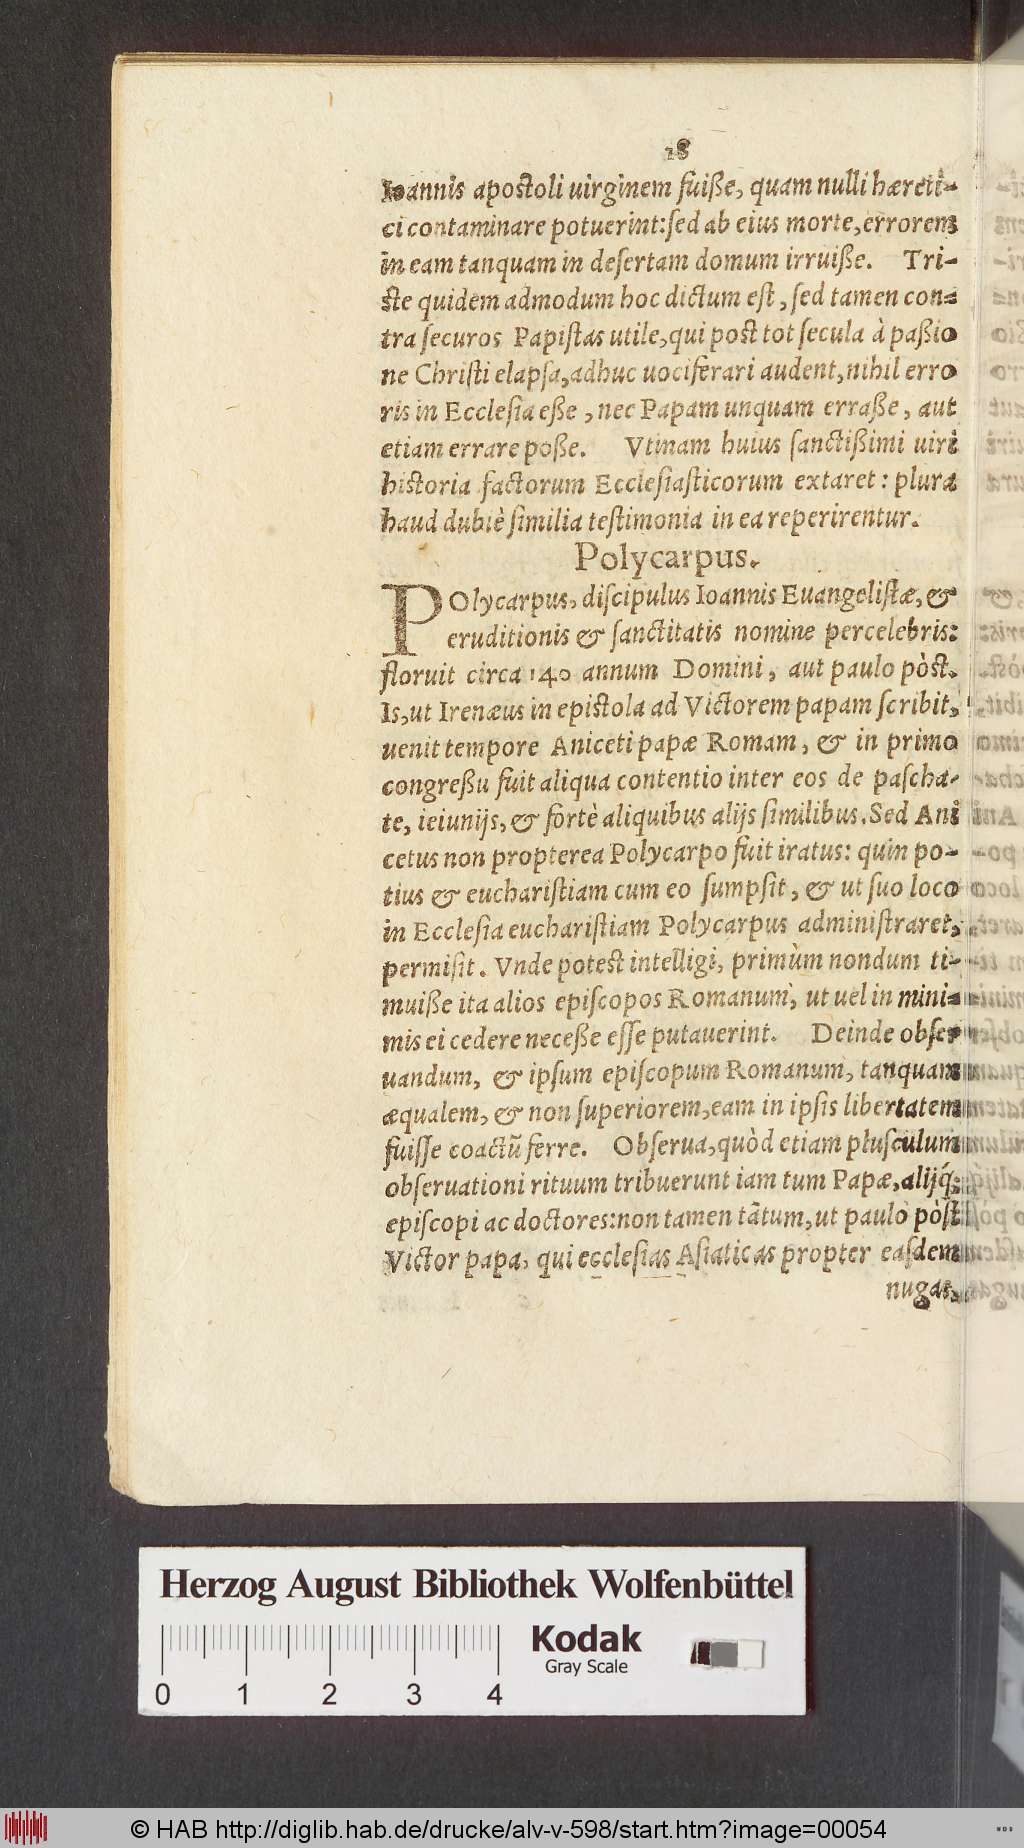 18
Ioannis apostoli uirginem fuiße, quam nulli hæreti-
ci contaminare potuerint: sed ab eius morte, errorem
in eam tanquam in desertam domum irruiße. Tri-
ste quidem admodum hoc dictum est, sed tamen con-
tra securos Papistas utile, qui post tot secula à paßio
ne Christi elapsa, adhuc uociferari audent, nihil erro
ris in Ecclesia eße, nec Papam unquam erraße, aut
etiam errare poße. Vtinam huius sanctißimi uiri
historia factorum Ecclesiasticorum extaret: plura
haud dubiè similia testimonia in ea reperirentur.
Polycarpus.
POlycarpus, discipulus Ioannis Euangelistæ, &
eruditionis & sanctitatis nomine percelebris:
floruit circa 140 annum Domini, aut paulo pòst.
Is, ut Irenæus in epistola ad Victorem papam scribit,
uenit tempore Aniceti papæ Romam, & in primo
congreßu fuit aliqua contentio inter eos de pascha-
te, ieiunijs, & fortè aliquibus alijs similibus. Sed Ani
cetus non propterea Polycarpo fuit iratus: quin po-
tius & eucharistiam cum eo sumpsit, & ut suo loco
in Ecclesia eucharistiam Polycarpus administraret,
permisit. Vnde potest intelligi, primùm nondum ti-
muiße ita alios episcopos Romanum, ut uel in mini-
mis ei cedere neceße esse putauerint. Deinde obser
uandum, & ipsum episcopum Romanum, tanquam
æqualem, & non superiorem, eam in ipsis libertatem
fuisse coactũ ferre. Obserua, quòd etiam plusculum
obseruationi rituum tribuerunt iam tum Papæ, alijq́;
episcopi ac doctores: non tamen tãtum, ut paulò pòst
Victor papa, qui ecclesias Asiaticas propter easdem
nugas,
Herzog August Bibliothek Wolfenbüttel
Kodak
Gray Scale
0 1 2 3 4
© HAB http://diglib.hab.de/drucke/alv-v-598/start.htm?image=00054